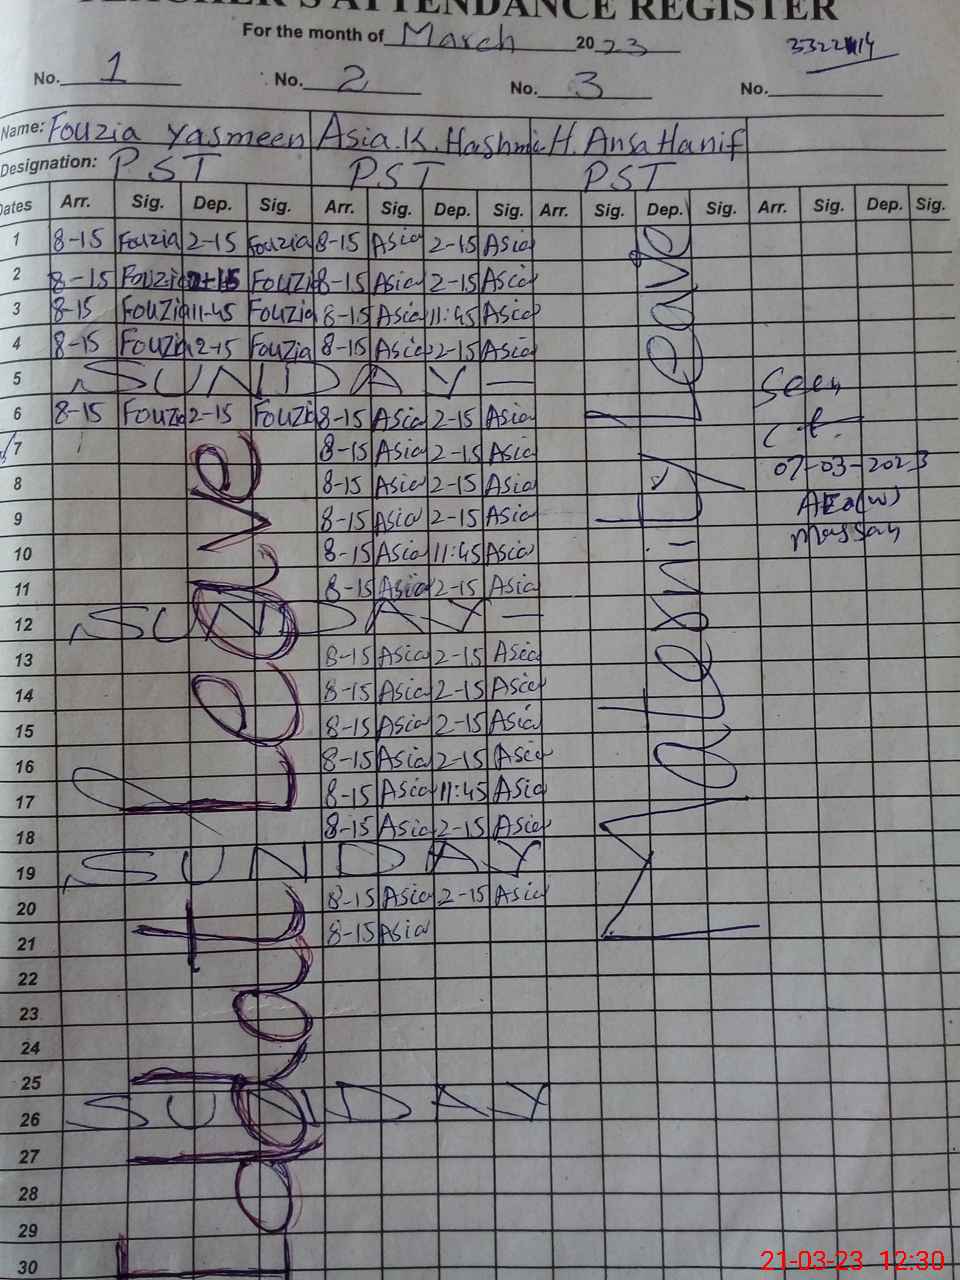 TEACHER'S ATTENDANCE REGISTER
For the month of March 2023
No. 1 No. 2 No. 3 No.
Name: Fouzia Yasmeen Asia.K.Hashmi H. Ansa Hanif
Designation: PST PST PST
Dates Arr. Sig. Dep. Sig. Arr. Sig. Dep. Sig. Arr. Sig. Dep. Sig. Arr. Sig. Dep. Sig.
1 8-15 Fouzia 2-15 Fouzia 8-15 Asia 2-15 Asia
2 8-15 Fouzia Fouzia 8-15 Asia 2-15 Asia
3 8-15 Fouzia 11-45 Fouzia 8-15 Asia 11:45 Asia
4 8-15 Fouzia 2-15 Fouzia 8-15 Asia 2-15 Asia
5 SUNDAY -
6 8-15 Fouzia 2-15 Fouzia 8-15 Asia 2-15 Asia
7 8-15 Asia 2-15 Asia
8 8-15 Asia 2-15 Asia
9 8-15 Asia 2-15 Asia
10 8-15 Asia 11:45 Asia
11 8-15 Asia 2-15 Asia
12 SUNDAY -
13 8-15 Asia 2-15 Asia
14 8-15 Asia 2-15 Asia
15 8-15 Asia 2-15 Asia
16 8-15 Asia 2-15 Asia
17 8-15 Asia 11:45 Asia
18 8-15 Asia 2-15 Asia
19 SUNDAY
20 8-15 Asia 2-15 Asia
21 8-15 Asia
22
23
24
25
26 SUNDAY
27
28
29
30
Leave
Maternity Leave
Seen
07-03-2023
AEO(W)
21-03-23 12:30